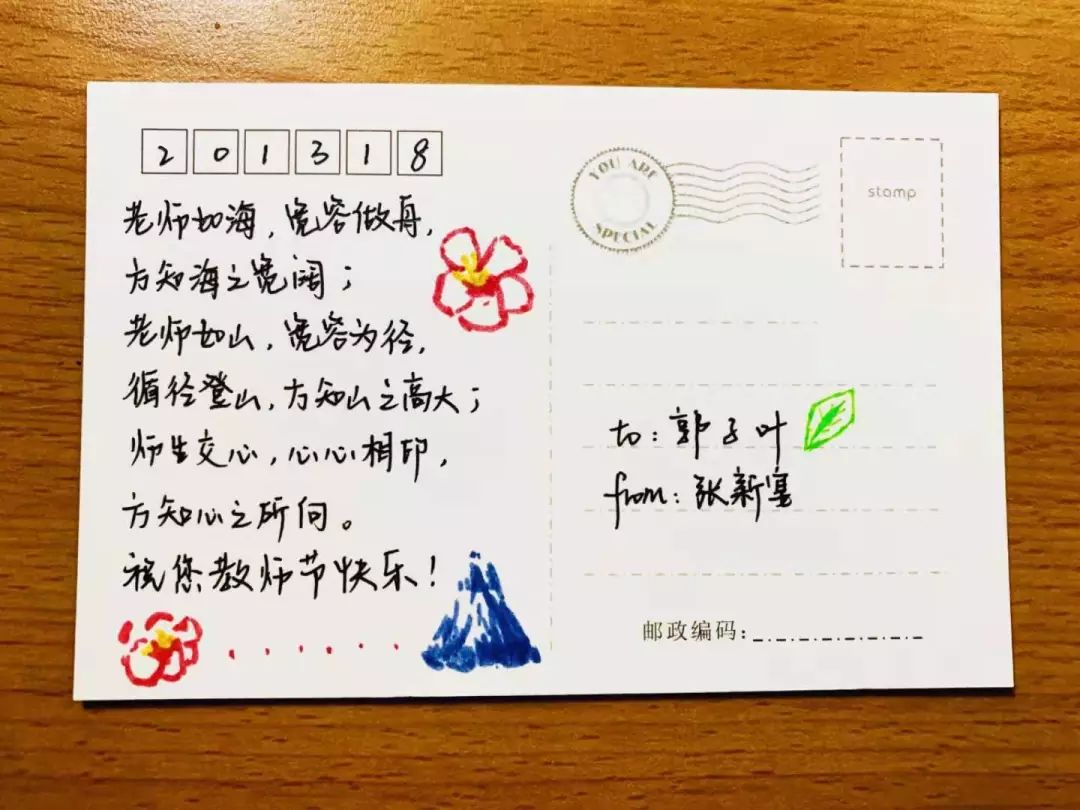 201318
老师如海，宽容做舟，
方知海之宽阔；
老师如山，宽容为径，
循径登山，方知山之高大；
师生交心，心心相印，
方知心之所向。
祝您教师节快乐！
YOU ARE
SPECIAL
stamp
to：郭子叶
from：张新宴
邮政编码：